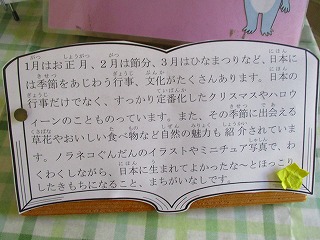 1月はお正月、2月は節分、3月はひなまつりなど、日本に
は季節をあじわう行事、文化がたくさんあります。日本の
行事だけでなく、すっかり定番化したクリスマスやハロウ
ィーンのこともものっています。また、その季節に出会える
草花やおいしい食べ物など自然の魅力も紹介されていま
す。ノラネコぐんだんのイラストやミニチュア写真で、わ
くわくしながら、日本に生まれてよかったな〜とほっこり
したきもちになること、まちがいなしです。